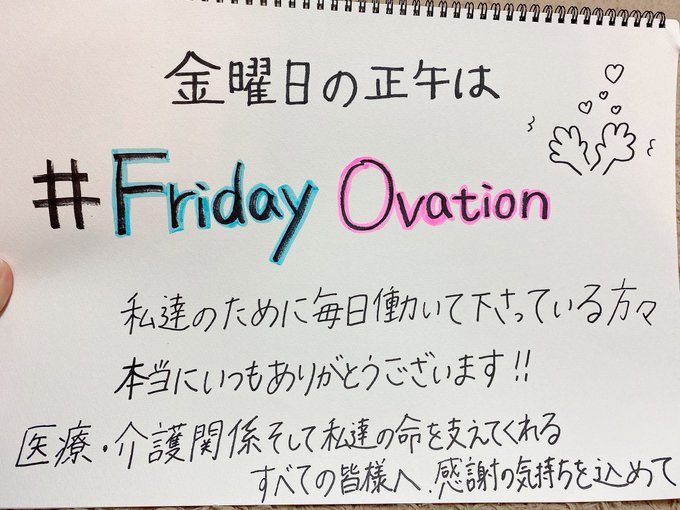 金曜日の正午は
#Friday Ovation
私達のために毎日働いて下さっている方々
本当にいつもありがとうございます!!
医療・介護関係そして私達の命を支えてくれる
すべての皆様へ、感謝の気持ちを込めて